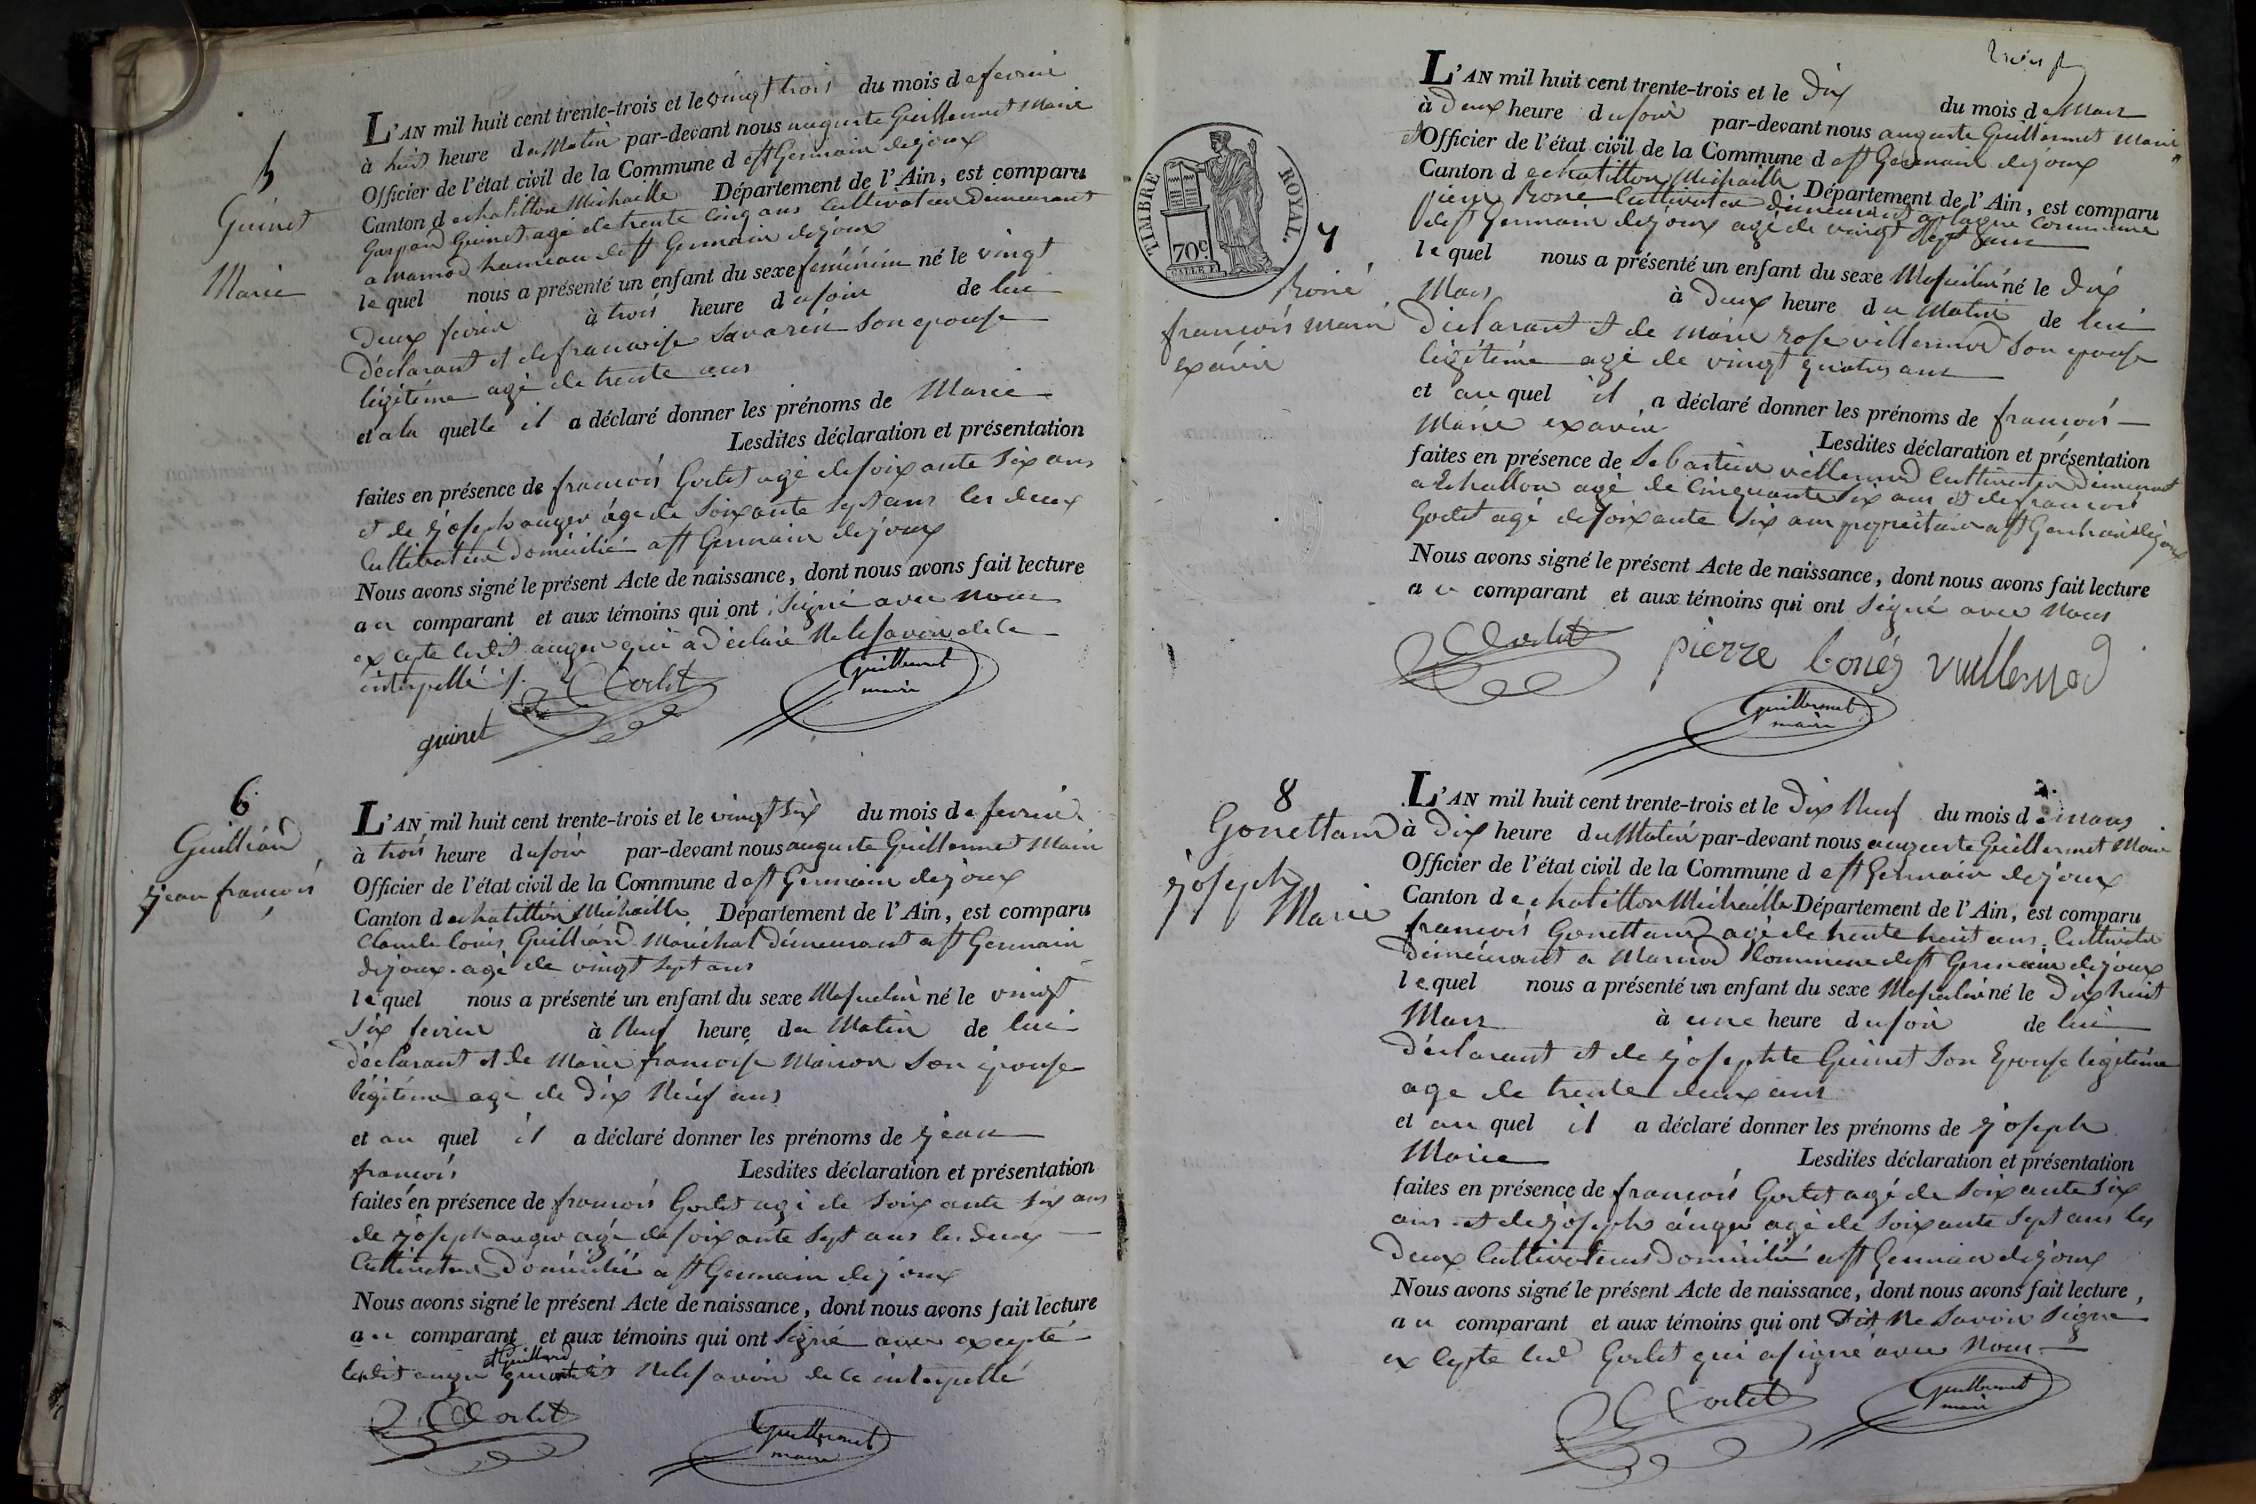 5
Guinet
Marie
L'AN mil huit cent trente-trois et le vingt trois du mois de fevrié
à huit heure du Matin par-devant nous auguste Guillermet Maire
Officier de l'état civil de la Commune de st Germain dejoux
Canton de chatillon Michaille Département de l'Ain, est comparu
Gaspard Guinet agé de trente cinq ans Cultivateur Demeurant
a marnod hameau de st Germain dejoux
lequel nous a présenté un enfant du sexe féminin né le vingt
Deux fevrier à trois heure du soir de lui
déclarant et de francoise Savarin Son epouse
légitéme agé de trente ans
et a la quelle il a déclaré donner les prénoms de Marie
Lesdites déclaration et présentation
faites en présence de francois Godet agé de soixante Six ans
et de Joseph auger áge de Soixante Sept ans les deux
Cultivateur domicilié a st Germain dejoux
Nous avons signé le présent Acte de naissance, dont nous avons fait lecture
au comparant et aux témoins qui ont signé avec nous
excepte ledit auger qui a déclaré Ne le savoir de ce
interpellé ./.
guinet Godet Guillermet maire
6
Guilliand
Jean francois
L'AN mil huit cent trente-trois et le vingt Six du mois de fevrié
à trois heure du soir par-devant nous auguste Guillermet Maire
Officier de l'état civil de la Commune de st Germain dejoux
Canton de chatillon Michaille Département de l'Ain, est comparu
Claude louis Guilliand Maréchal démeurant a st Germain
dejoux agé de vingt sept ans
lequel nous a présenté un enfant du sexe Masculin né le vingt
Six fevrier à Neuf heure du Matin de lui
déclarant et de Marie francoise Maison Son épouse
légitéme agé de Dix Neuf ans
et au quel il a déclaré donner les prénoms de Jean
francois Lesdites déclaration et présentation
faites en présence de francois Godet agé de Soixante Six ans
de Joseph auger agé de soixante Sept ans les deux
Cultivateur Domicilié a st Germain dejoux
Nous avons signé le présent Acte de naissance, dont nous avons fait lecture
au comparant et aux témoins qui ont Signé avec excepté
et Guilland
ledit auger qui ont dit Ne le savoir de ce interpellé
Godet Guillermet maire
TIMBRE ROYAL.
70c
7
Boné
francois marie
exavie
L'AN mil huit cent trente-trois et le Dix du mois de Mars
à Deux heure du soir par-devant nous auguste Guillermet Maire
Officier de l'état civil de la Commune de st Germain dejoux
Canton de chatillon Michaille Département de l'Ain, est comparu
pierre Boné Cultivateur démeurant a plagne Commune
de st Germain dejoux agé de vingt Sept ans
lequel nous a présenté un enfant du sexe Masculin né le Dix
Mars à Deux heure du Matin de lui
Déclarant et de Marie rose villermod Son epouse
légitéme agé de vingt quatre ans
et au quel il a déclaré donner les prénoms de francois
Marie exavie Lesdites déclaration et présentation
faites en présence de Sebastien villermod Cultivateur Demeurant
a Echallon agé de Cinquante Six ans et de francois
Godet agé de soixante Six ans proprietaire a st Germain dejoux
Nous avons signé le présent Acte de naissance, dont nous avons fait lecture
au comparant et aux témoins qui ont Signé avec Nous
Godet pierre bonéz vuillermod
Guillermet maire
8
Gonettand
Joseph
Marie
L'AN mil huit cent trente-trois et le Dix Neuf du mois de mars
à Dix heure du Matin par-devant nous auguste Guillermet Maire
Officier de l'état civil de la Commune de st Germain dejoux
Canton de chatillon Michaille Département de l'Ain, est comparu
francois Gonettand agé de trente huit ans Cultivateur
Deméurant a Marnod Commune de st Germain dejoux
lequel nous a présenté un enfant du sexe Masculin né le Dix huit
Mars à une heure du soir de lui
Déclarant et de Josephte Guinet Son Epouse legitéme
age de trente deux ans
et au quel il a déclaré donner les prénoms de Joseph
Marie Lesdites déclaration et présentation
faites en présence de francois Godet agé de Soixante Six
ans et de Joseph auger agé de Soixante Sept ans les
Deux Cultivateurs Domicilié a st Germain dejoux
Nous avons signé le présent Acte de naissance, dont nous avons fait lecture,
au comparant et aux témoins qui ont Dit Ne Savoir Signe
excepte led Godet qui a signé avec Nous
Godet Guillermet maire